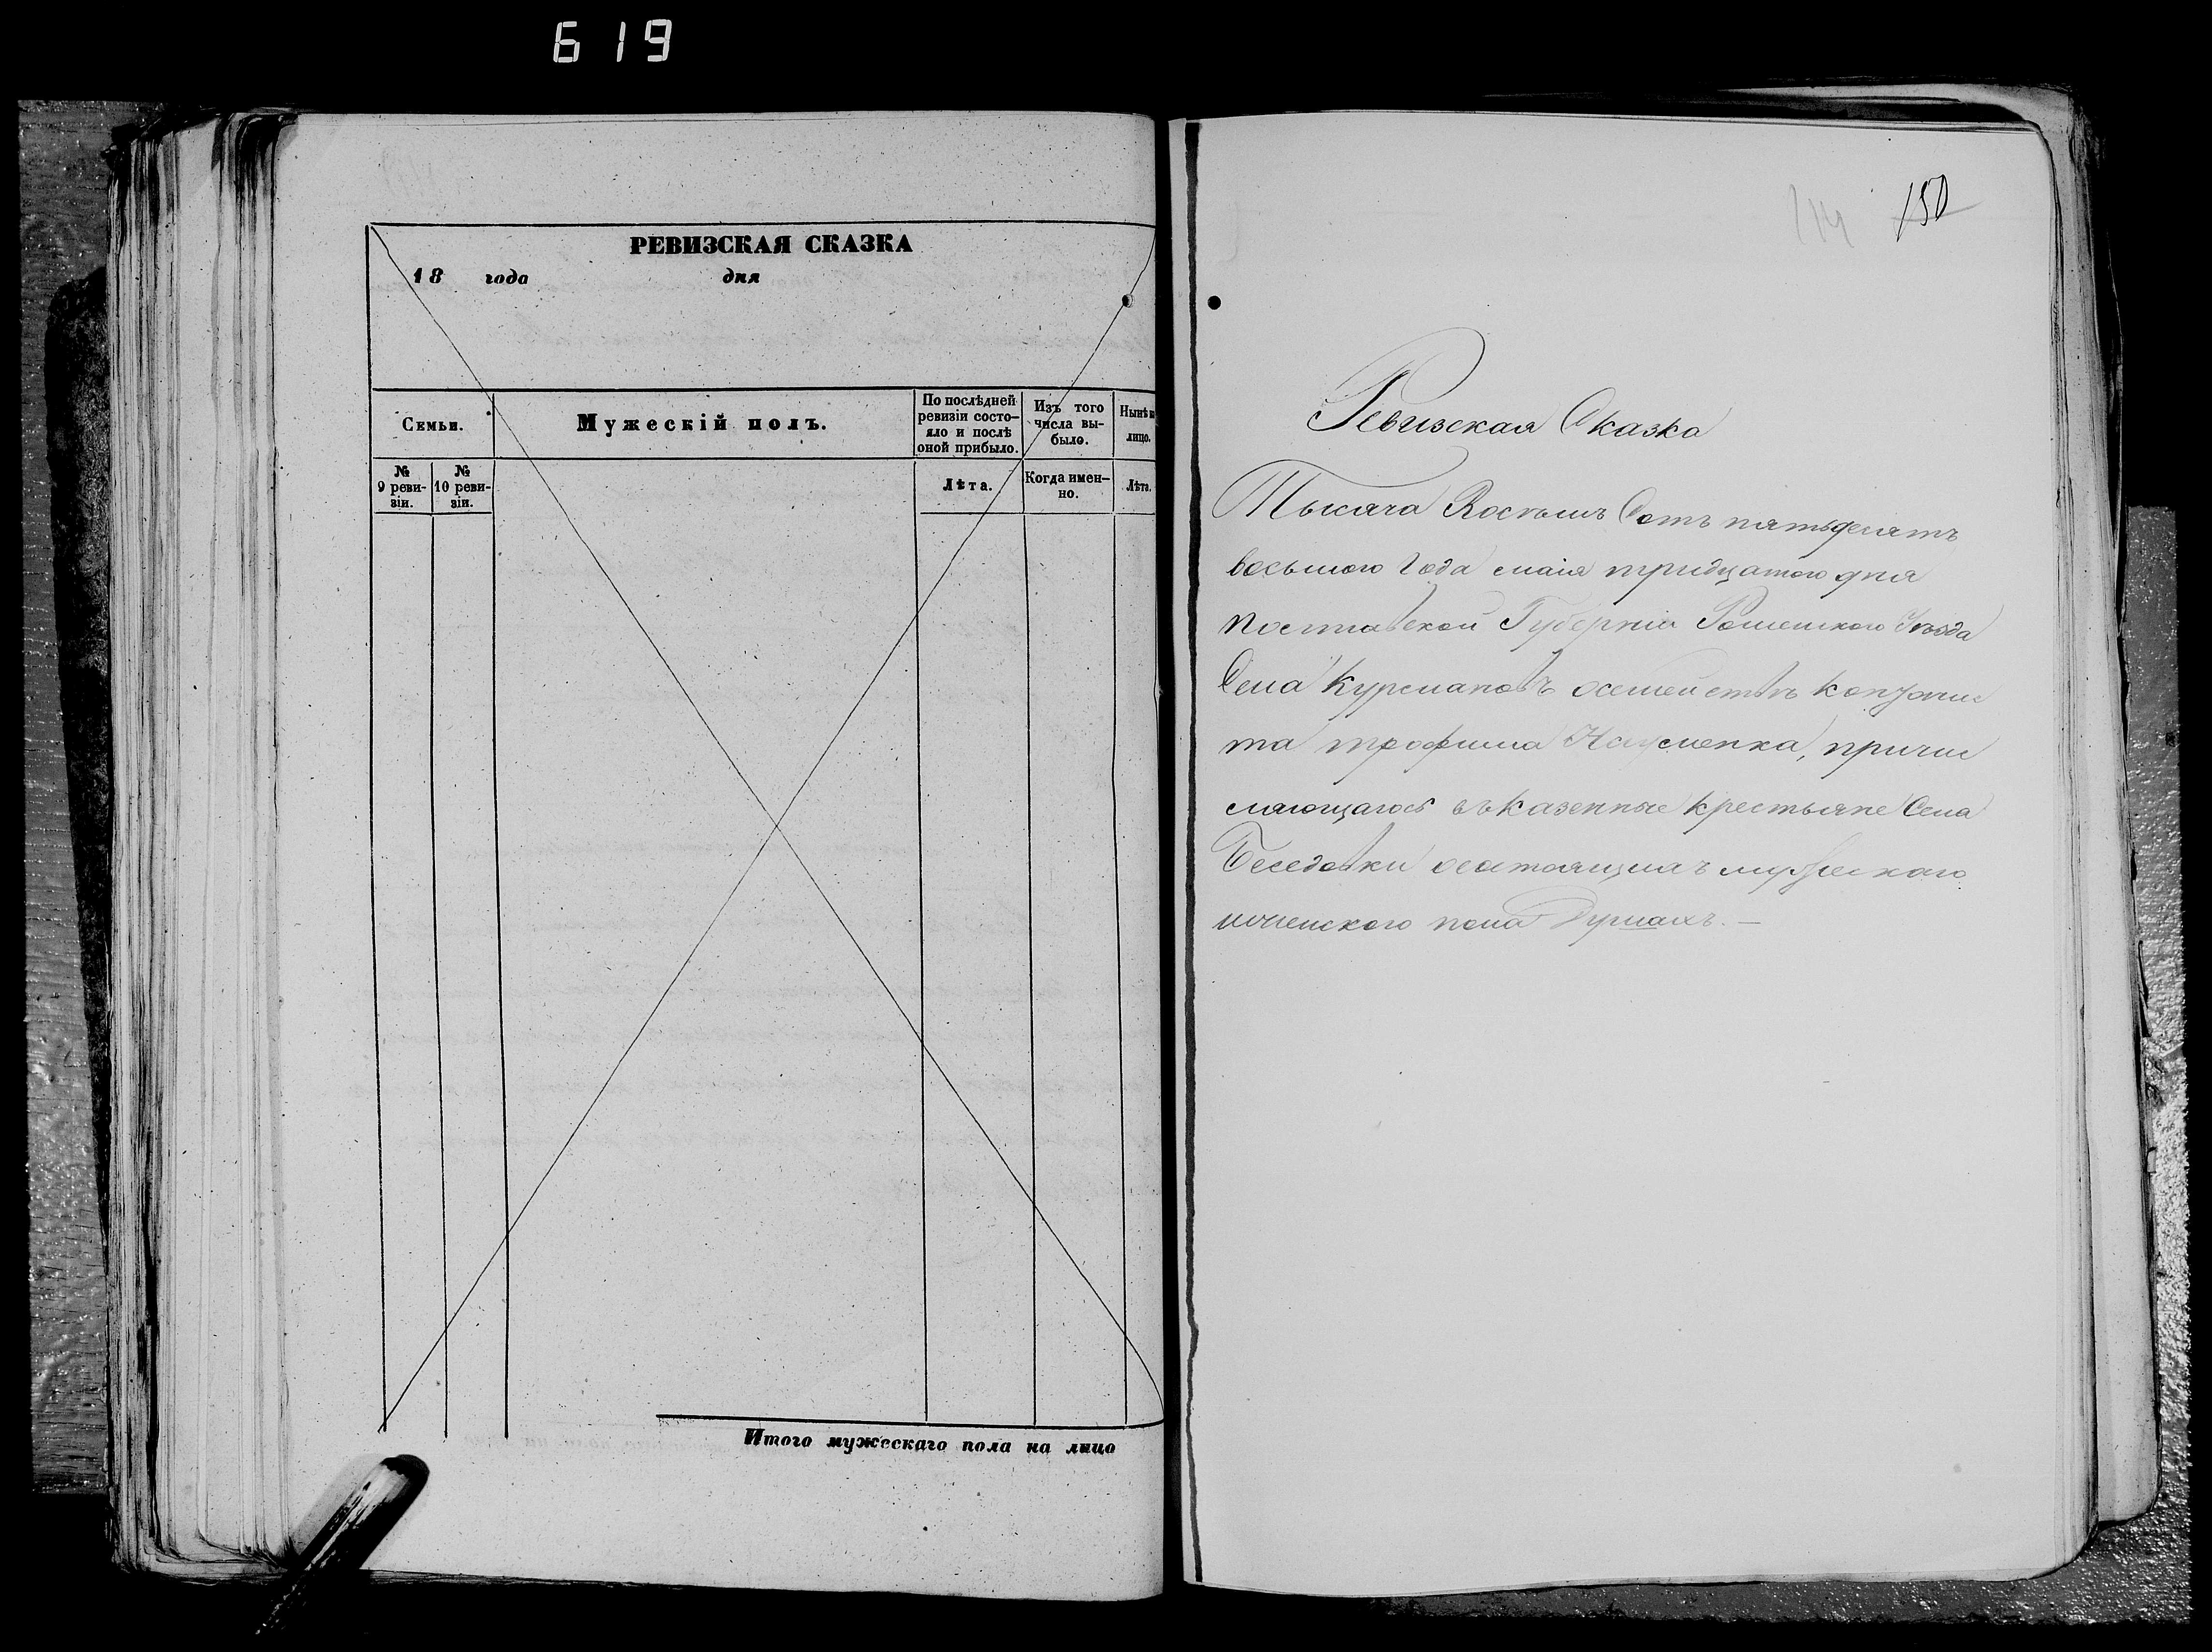 619
РЕВИЗСКАЯ СКАЗКА
18 года дня
Семьи.
Мужескій полъ.
По послѣдней ревизіи состо-
яло и послѣ оной прибыло.
Изъ того числа вы-
было.
Нынѣ на лицо.
№ 9 реви-
зіи.
№ 10 реви-
зіи.
Лѣта.
Когда имен-
но.
Лѣта.
Итого мужескаго пола на лицо
114 150
Ревизская Сказка
Тысяча Восемь Сотъ пятьдесятъ
восьмого Года маія тридцатого дня
Полтавской Губерніи Роменского Уѣзда
Села Курмановъ осемействѣ
та трофима Науменка, причис
ляющагося въ казенные крестьяне Села
Беседовки осостоящихъ мужескаго
иженского пола Душахъ. —